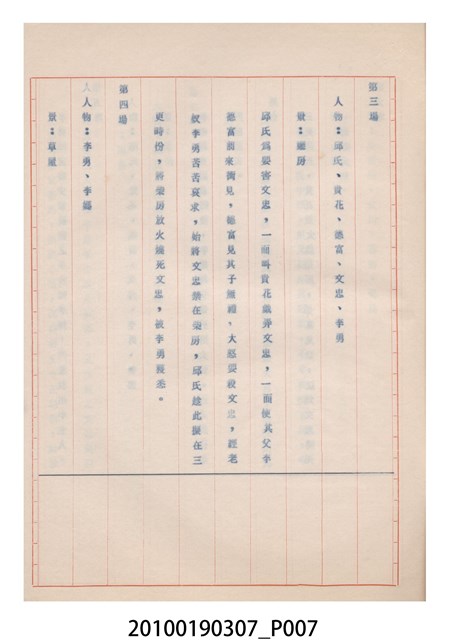 第三場
人物：邱氏、貴花、德富、文忠、李勇
景：廂房
邱氏為要害文忠，一面叫貴花戲弄文忠，一面使其父李
德富前來撞見，德富見其子無禮，大怒要殺文忠，經老
奴李勇苦苦哀求，始將文忠禁在柴房，邱氏趁此擬在三
更時份，將柴房放火燒死文忠，被李勇獲悉。
第四場
人人物：李勇、李
景：草
20100190307_P007